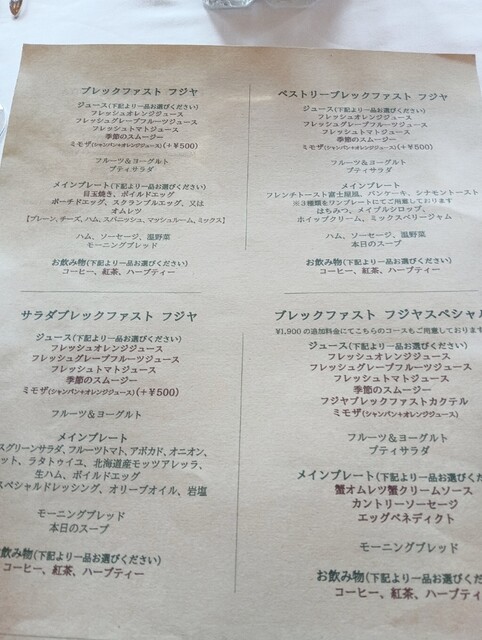 ブレックファスト フジヤ
ジュース(下記より一品お選びください)
フレッシュオレンジジュース
フレッシュグレープフルーツジュース
フレッシュトマトジュース
季節のスムージー
ミモザ(シャンパン+オレンジジュース)(+¥500)
フルーツ&ヨーグルト
プティサラダ
メインプレート(下記より一品お選びください)
目玉焼き、ボイルドエッグ
ポーチドエッグ、スクランブルエッグ、又は
オムレツ
【プレーン、チーズ、ハム、スパニッシュ、マッシュルーム、ミックス】
ハム、ソーセージ、温野菜
モーニングブレッド
お飲み物(下記より一品お選びください)
コーヒー、紅茶、ハーブティー
ペストリーブレックファスト フジヤ
ジュース(下記より一品お選びください)
フレッシュオレンジジュース
フレッシュグレープフルーツジュース
フレッシュトマトジュース
季節のスムージー
ミモザ(シャンパン+オレンジジュース)(+¥500)
フルーツ&ヨーグルト
プティサラダ
メインプレート
フレンチトースト富士屋風、パンケーキ、シナモントースト
※3種類をワンプレートにてご用意しております
はちみつ、メイプルシロップ、
ホイップクリーム、ミックスベリージャム
ハム、ソーセージ、温野菜
本日のスープ
お飲み物(下記より一品お選びください)
コーヒー、紅茶、ハーブティー
サラダブレックファスト フジヤ
ジュース(下記より一品お選びください)
フレッシュオレンジジュース
フレッシュグレープフルーツジュース
フレッシュトマトジュース
季節のスムージー
ミモザ(シャンパン+オレンジジュース)(+¥500)
フルーツ&ヨーグルト
メインプレート
スグリーンサラダ、フルーツトマト、アボカド、オニオン、
ット、ラタトゥイユ、北海道産モッツアレッラ、
生ハム、ボイルドエッグ
スペシャルドレッシング、オリーブオイル、岩塩
モーニングブレッド
本日のスープ
飲み物(下記より一品お選びください)
コーヒー、紅茶、ハーブティー
ブレックファスト フジヤスペシャル
¥1,900 の追加料金にてこちらのコースもご用意しております
ジュース(下記より一品お選びください)
フレッシュオレンジジュース
フレッシュグレープフルーツジュース
フレッシュトマトジュース
季節のスムージー
フジヤブレックファストカクテル
ミモザ(シャンパン+オレンジジュース)
フルーツ&ヨーグルト
プティサラダ
メインプレート(下記より一品お選びくださ
蟹オムレツ蟹クリームソース
カントリーソーセージ
エッグベネディクト
モーニングブレッド
お飲み物(下記より一品お選びくださ
コーヒー、紅茶、ハーブテ